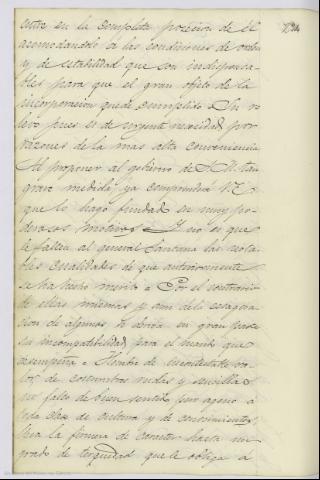 entre en la completa posesion de él
acomodandolo á las condiciones de orden
y de estabilidad que son indispensa-
bles para que el gran objeto de la
incorporacion quede cumplido. Su re
levo pues es de urgente necesidad por
razones de la mas alta conveniencia
Al proponer al gobierno de S. M. tan
grave medida, ya comprenderá V. E.
que lo hago fundado en muy po-
derosos motivos. Y no es que
le falten al general Santana las nota-
bles cualidades de que anteriormente
se ha hecho mérito. Por el contrario
de ellas mismas y aun de la exagera-
cion de algunas se deriva en gran parte
su incompatibilidad para el mando que
desempeña. Hombre de incontestable va-
lor, de costumbres rudas y sencillas
no falto de buen sentido pero ageno á
toda clase de cultura y de conocimientos,
lleva la firmeza de caracter hasta un
grado de terquedad que le obliga á